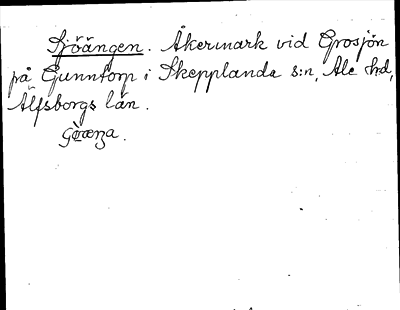 Sjöängen. Åkermark vid Grosjön
på Gunntorp i Skepplanda s:n, Ale hd,
Älfsborgs län.